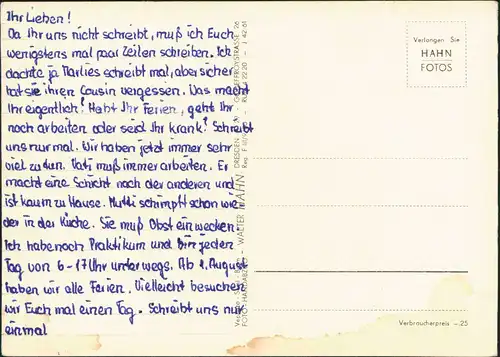 Ihr Lieben!
Da Ihr uns nicht schreibt, muß ich Euch
wenigstens mal paar Zeilen schreiben. Ich
dachte ja Marlies schreibt mal, aber sicher
hat sie ihren Cousin vergessen. Was macht
Ihr eigentlich? Habt Ihr Ferien, geht Ihr
noch arbeiten oder seid Ihr krank? Schreibt
uns nur mal. Wir haben jetzt immer sehr
viel zu tun. Vati muß immer arbeiten. Er
macht eine Schicht nach der anderen und
ist kaum zu Hause. Mutti schimpft schon wie-
der in der Küche. Sie muß Obst einwecken.
Ich habe noch Praktikum und bin jeden
Tag von 6-17 Uhr unterwegs. Ab 1. August
haben wir alle Ferien. Vielleicht besuchen
wir Euch mal einen Tag. Schreibt uns nur
einmal
WALTER HAHN DRESDEN
Verlangen Sie
HAHN
FOTOS
Verbraucherpreis -.25